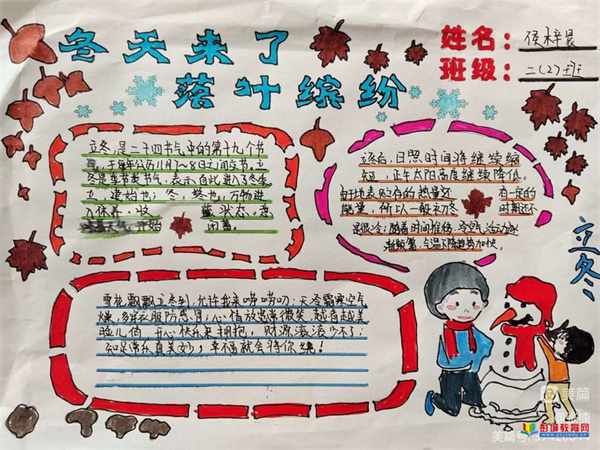 冬天来了
落叶缤纷
姓名：侯梓晨
班级：二(2)班
立冬，是二十四节气中的第十九个节
气，于每年公历11月7~8日之间交节，立
冬是季节类节气，表示自此进入了冬季。
立，建始也；冬，终也，万物进
入休养、收 藏状态，意
开始 闭蓄。
立冬后，日照时间将继续缩
短，正午太阳高度继续降低。
由于地表贮存的热量还 有一定的
能量，所以一般初冬 时期还不
是很冷；随着时间推移，冷空气活动
较频繁，气温下降趋势加快。
立冬
雪花飘飘立冬到，允许我来唠唠叨，天冷霜寒空气
燥，多来衣服防感冒，心情放宽薄微笑，
开心快乐来拥抱，财源滚滚少不了；
知足常乐真美妙，幸福就会将你绕！
美篇
彭城教育网